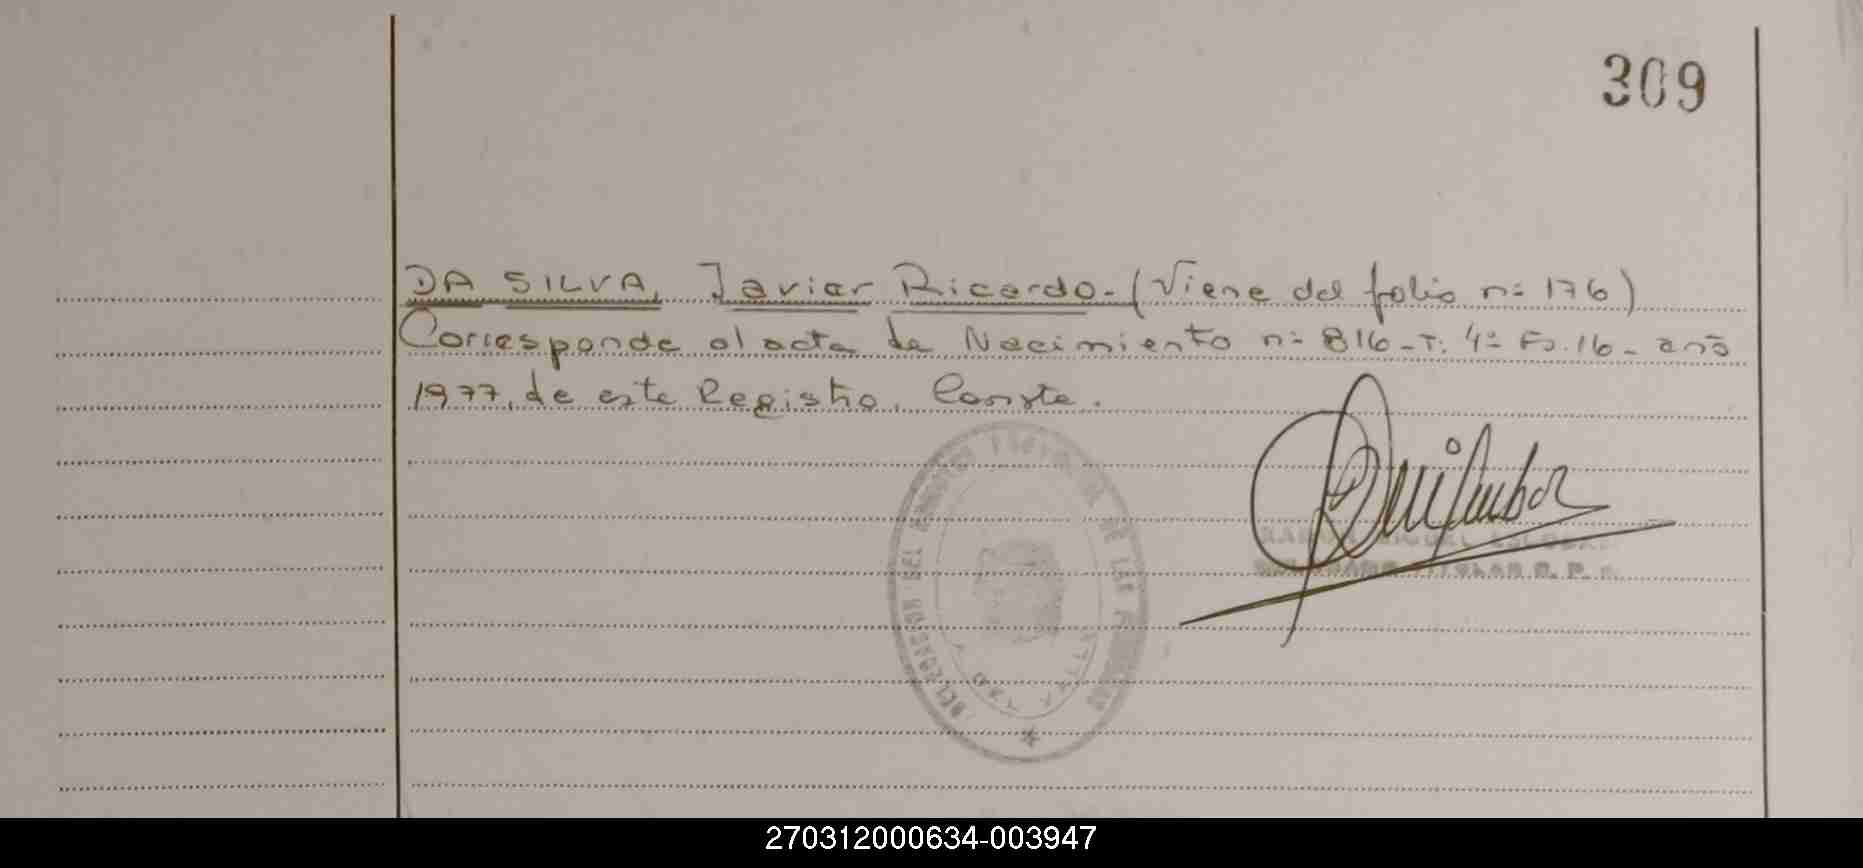 309
DA SILVA, Javier Ricardo.- (Viene del folio nº 176)
Corresponde al acta de Nacimiento nº 816 - T. 4º Fo. 16 - año
1977, de este Registro. Conste.
DELEGACION DEL REGISTRO PROVINCIAL DE LAS PERSONAS
TITULAR R. P.
270312000634-003947